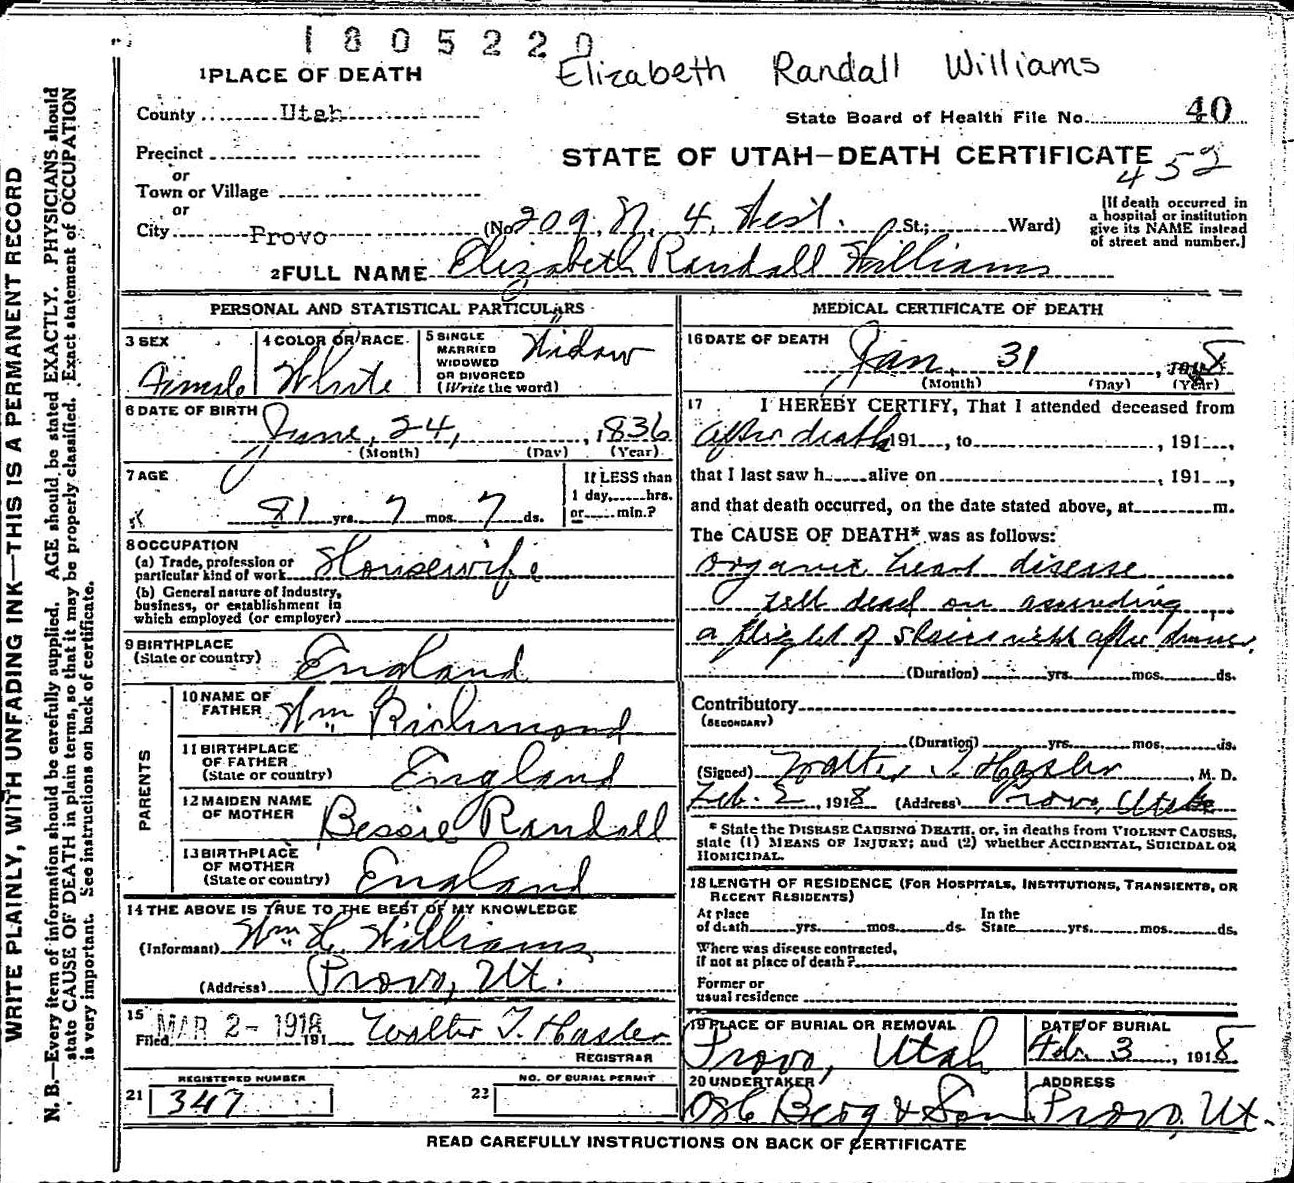 1805220
Elizabeth Randall Williams
1 PLACE OF DEATH
County Utah
State Board of Health File No. 40
Precinct
or
STATE OF UTAH—DEATH CERTIFICATE
452
Town or Village
or
City Provo (No. 209 N. 4 West. St.; Ward)
[If death occurred in
a hospital or institution
give its NAME instead
of street and number.]
2 FULL NAME Elizabeth Randall Williams
PERSONAL AND STATISTICAL PARTICULARS
3 SEX
Female
4 COLOR OR RACE
White
5 SINGLE
MARRIED
WIDOWED
OR DIVORCED
(Write the word)
Widow
6 DATE OF BIRTH
June, 24, 1836
(Month) (Day) (Year)
7 AGE
81 yrs. 7 mos. 7 ds.
If LESS than
1 day, hrs.
or min.?
8 OCCUPATION
(a) Trade, profession or
particular kind of work Housewife
(b) General nature of industry,
business, or establishment in
which employed (or employer)
9 BIRTHPLACE
(State or country) England
PARENTS
10 NAME OF
FATHER Wm Richmond
11 BIRTHPLACE
OF FATHER
(State or country) England
12 MAIDEN NAME
OF MOTHER Bessie Randall
13 BIRTHPLACE
OF MOTHER
(State or country) England
14 THE ABOVE IS TRUE TO THE BEST OF MY KNOWLEDGE
(Informant) Wm H. Williams
(Address) Provo, Ut.
15
Filed MAR 2 - 1918 191 Walter T. Hasler
REGISTRAR
REGISTERED NUMBER
21 347
NO. OF BURIAL PERMIT
22
MEDICAL CERTIFICATE OF DEATH
16 DATE OF DEATH
Jan. 31, 1918
(Month) (Day) (Year)
17 I HEREBY CERTIFY, That I attended deceased from
after death 191 , to , 191 ,
that I last saw h alive on , 191 ,
and that death occurred, on the date stated above, at m.
The CAUSE OF DEATH* was as follows:
Organic heart disease
fell dead on ascending
a flight of stairs after dinner.
(Duration) yrs. mos. ds.
Contributory
(SECONDARY)
(Duration) yrs. mos. ds.
(Signed) Walter T. Hasler, M. D.
Feb. 2, 1918 (Address) Provo, Utah
* State the DISEASE CAUSING DEATH, or, in deaths from VIOLENT CAUSES,
state (1) MEANS OF INJURY; and (2) whether ACCIDENTAL, SUICIDAL OR
HOMICIDAL.
18 LENGTH OF RESIDENCE (FOR HOSPITALS, INSTITUTIONS, TRANSIENTS, OR
RECENT RESIDENTS)
At place
of death yrs. mos. ds.
In the
State yrs. mos. ds.
Where was disease contracted,
if not at place of death?
Former or
usual residence
19 PLACE OF BURIAL OR REMOVAL
Provo, Utah
DATE OF BURIAL
3, 1918
20 UNDERTAKER
Berg & Son
ADDRESS
Provo, Ut.
READ CAREFULLY INSTRUCTIONS ON BACK OF CERTIFICATE
WRITE PLAINLY, WITH UNFADING INK—THIS IS A PERMANENT RECORD
N. B.—Every item of information should be carefully supplied. AGE should be stated EXACTLY. PHYSICIANS should
state CAUSE OF DEATH in plain terms, so that it may be properly classified. Exact statement of OCCUPATION
is very important. See instructions on back of certificate.